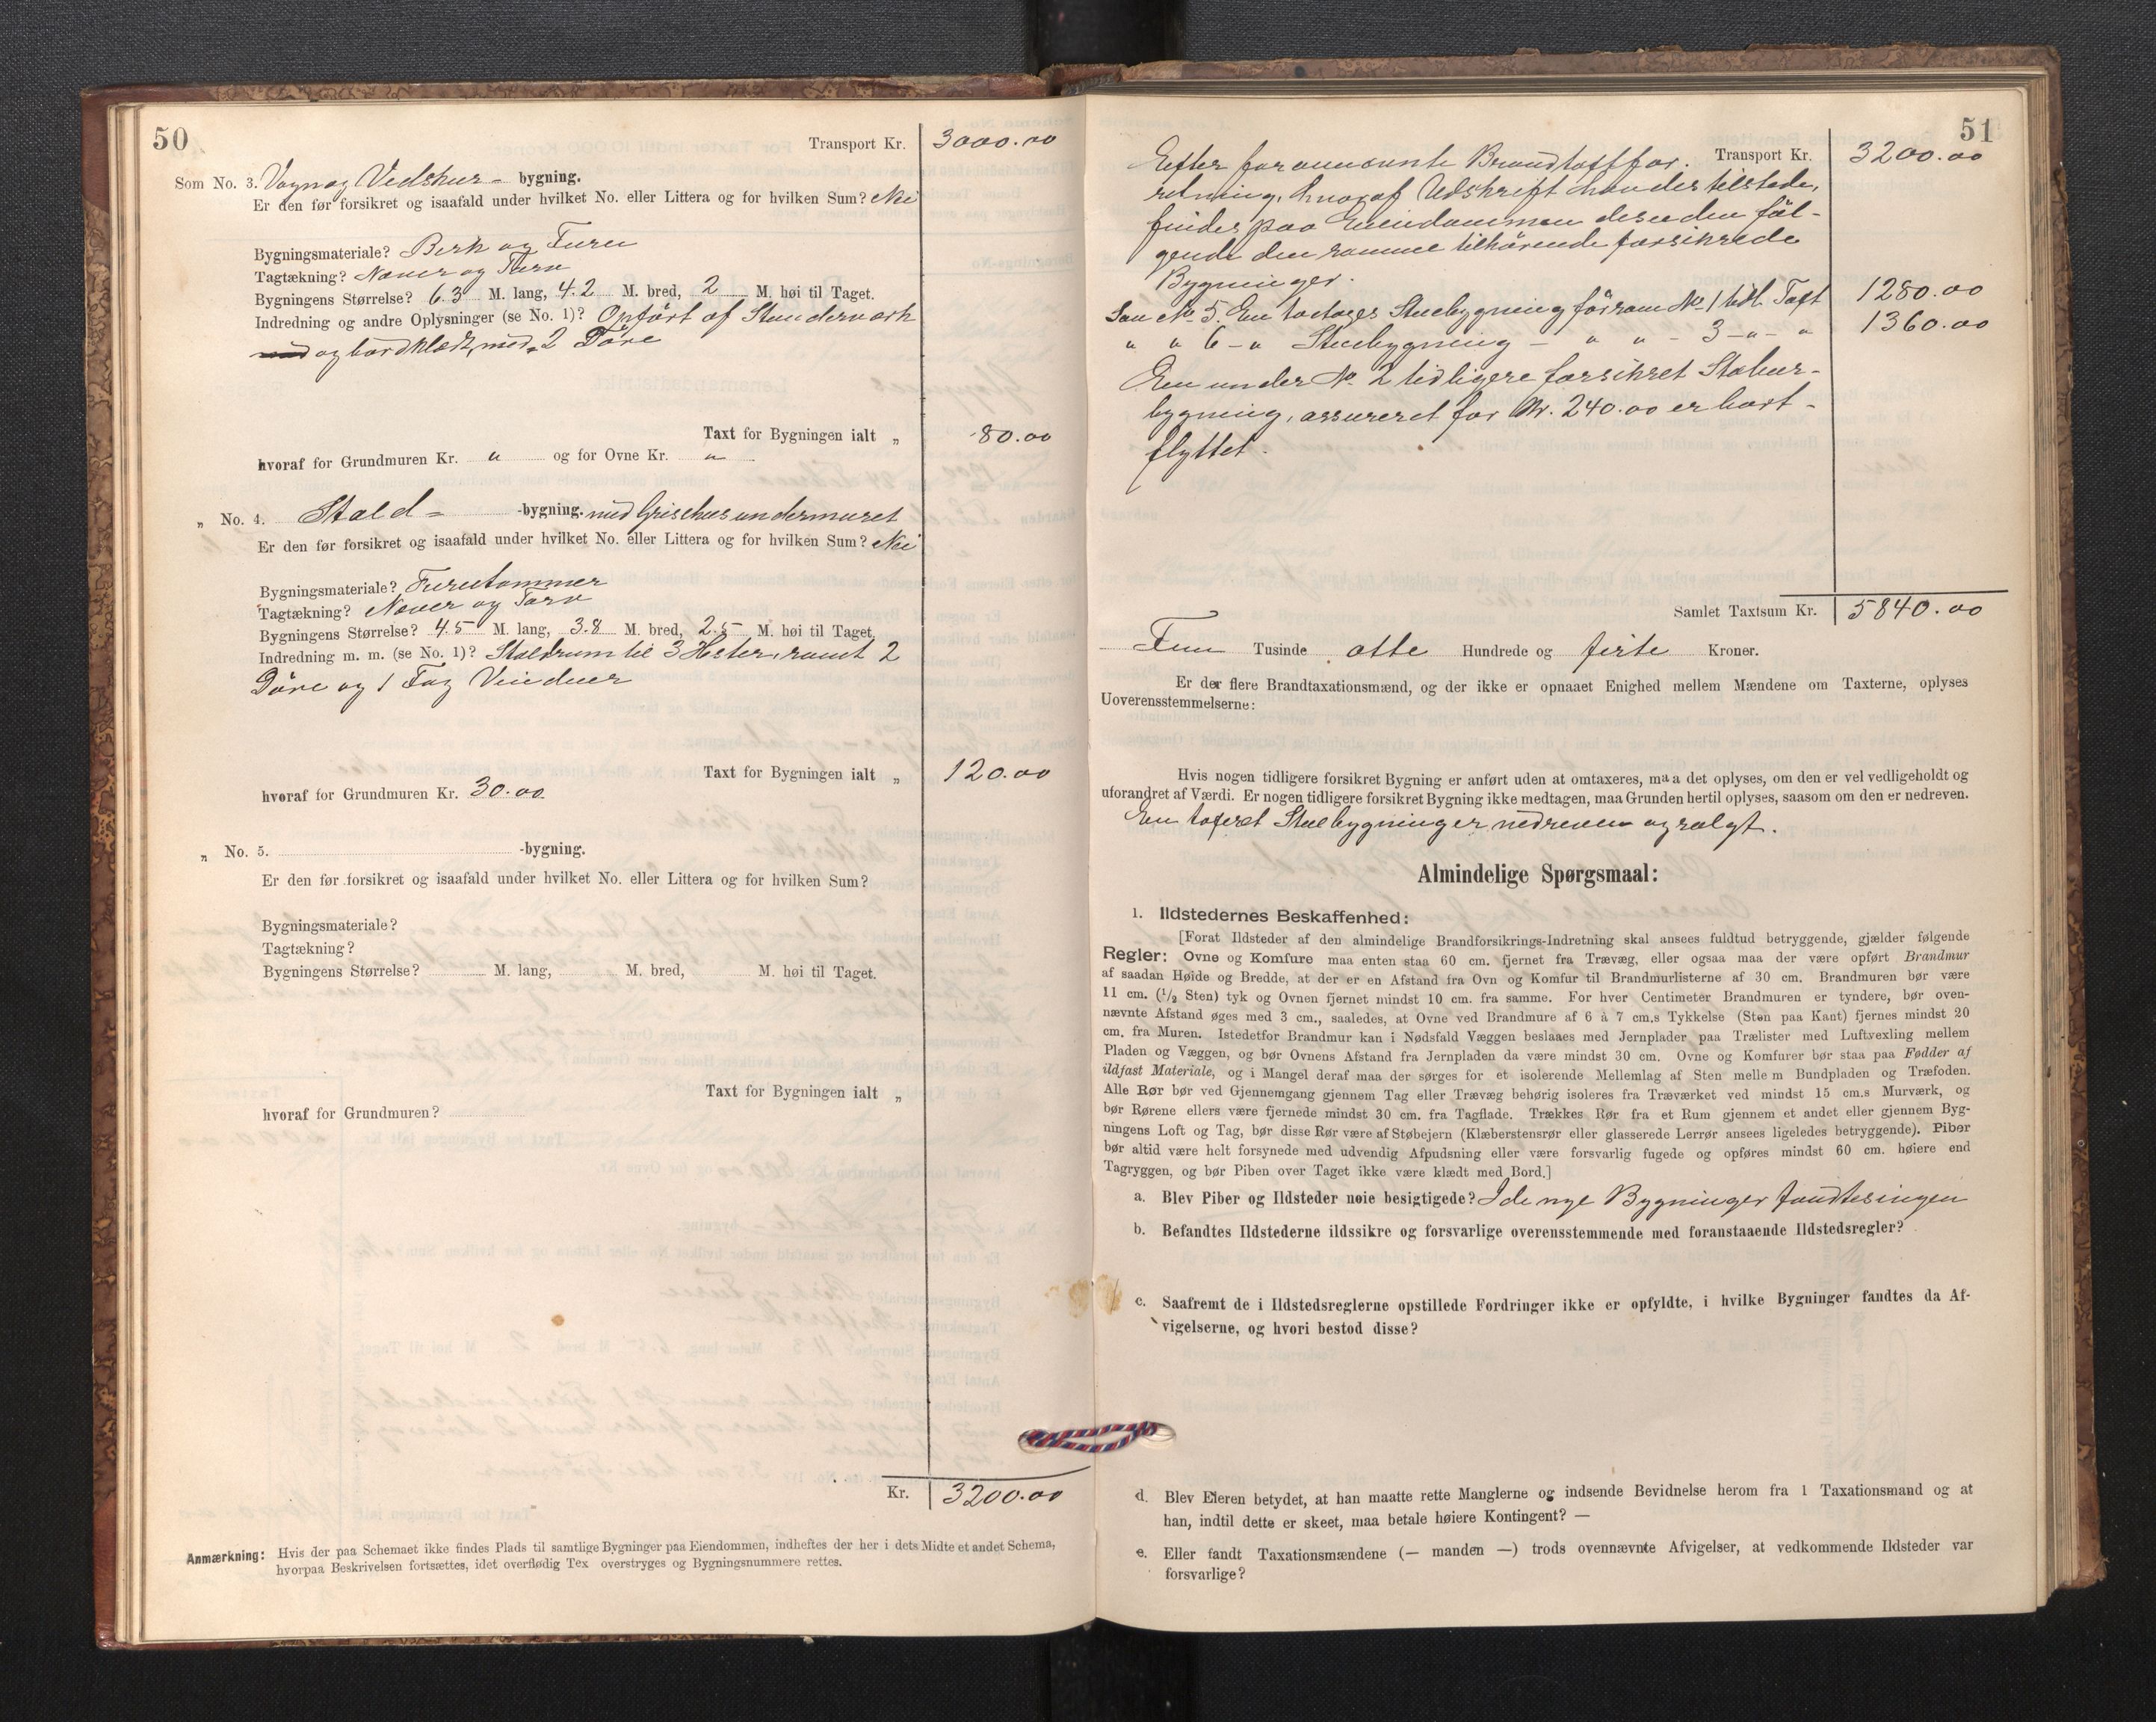 50
Transport Kr. 3000.00
Som No. 3. Vogn og Vedskur- bygning.
Er den før forsikret og isaafald under hvilket No. eller Littera og for hvilken Sum? Nei
Bygningsmateriale? Birk og Furu
Tagtækning? Næver og Tørv
Bygningens Størrelse? 6.3 M. lang, 4.2 M. bred, 2 M. høi til Taget.
Indredning og andre Oplysninger (se No. 1)? Opført af Stenderværk
og bordklædt, med 2 Døre
Taxt for Bygningen ialt „ 80.00
hvoraf for Grundmuren Kr. " og for Ovne Kr. "
„ No. 4. Stald- -bygning. med Grisehus undermuret
Er den før forsikret og isaafald under hvilket No. eller Littera og for hvilken Sum? Nei
Bygningsmateriale? Furutømmer
Tagtækning? Næver og Tørv
Bygningens Størrelse? 4.5 M. lang, 3.8 M. bred, 2.5 M. høi til Taget.
Indredning m. m. (se No. 1)? Staldrum til 3 Hester, samt 2
Døre og 1 Fag Vinduer
Taxt for Bygningen ialt „ 120.00
hvoraf for Grundmuren Kr. 30.00
„ No. 5. -bygning.
Er den før forsikret og isaafald under hvilket No. eller Littera og for hvilken Sum?
Bygningsmateriale?
Tagtækning?
Bygningens Størrelse? M. lang, M. bred, M. høi til Taget.
Taxt for Bygningen ialt „
hvoraf for Grundmuren?
Kr. 3200.00
Anmærkning: Hvis der paa Schemaet ikke findes Plads til samtlige Bygninger paa Eiendommen, indheftes der her i dets Midte et andet Schema,
hvorpaa Beskrivelsen fortsættes, idet overflødig Tex overstryges og Bygningsnummere rettes.
51
Transport Kr. 3200.00
Efter forannævnte Brandtaxtfor-
retning, hvoraf Udskrift havdes tilstede,
findes paa Eiendommen desuden føl-
gende den samme tilhørende forsikrede
Bygninger.
Som No 5. En toetages Stuebygning før som No 1 tidl. Taxt 1280.00
" " 6 - " Stuebygning - " " - 3 - " - " 1360.00
En under No. 2 tidligere forsikret Stabur-
bygning, assureret for Kr. 240.00 er bort-
flyttet.
Samlet Taxtsum Kr. 5840.00
Fem Tusinde otte Hundrede og firti Kroner.
Er der flere Brandtaxationsmænd, og der ikke er opnaaet Enighed mellem Mændene om Taxterne, oplyses
Uoverensstemmelserne:
Hvis nogen tidligere forsikret Bygning er anført uden at omtaxeres, maa det oplyses, om den er vel vedligeholdt og
uforandret af Værdi. Er nogen tidligere forsikret Bygning ikke medtagen, maa Grunden hertil oplyses, saasom om den er nedreven.
En Stuebygning er nedreven og solgt.
Almindelige Spørgsmaal:
1. Ildstedernes Beskaffenhed:
[Forat Ildsteder af den almindelige Brandforsikrings-Indretning skal ansees fuldtud betryggende, gjælder følgende
Regler: Ovne og Komfure maa enten staa 60 cm. fjernet fra Trævæg, eller ogsaa maa der være opført Brandmur
af saadan Høide og Bredde, at der er en Afstand fra Ovn og Komfur til Brandmurlisterne af 30 cm. Brandmuren bør være
11 cm. (1/2 Sten) tyk og Ovnen fjernet mindst 10 cm. fra samme. For hver Centimeter Brandmuren er tyndere, bør oven-
nævnte Afstand øges med 3 cm., saaledes, at Ovne ved Brandmure af 6 à 7 cm.s Tykkelse (Sten paa Kant) fjernes mindst 20
cm. fra Muren. Istedetfor Brandmur kan i Nødsfald Væggen beslaaes med Jernplader paa Trælister med Luftvexling mellem
Pladen og Væggen, og bør Ovnens Afstand fra Jernpladen da være mindst 30 cm. Ovne og Komfurer bør staa paa Fødder af
ildfast Materiale, og i Mangel deraf maa der sørges for et isolerende Mellemlag af Sten mellem Bundpladen og Træfoden.
Alle Rør bør ved Gjennemgang gjennem Tag eller Trævæg behørig isoleres fra Træværket ved mindst 15 cm.s Murværk, og
bør Rørene ellers være fjernede mindst 30 cm. fra Tagflade. Trækkes Rør fra et Rum gjennem et andet eller gjennem Byg-
ningens Loft og Tag, bør disse Rør være af Støbejern (Klæberstensrør eller glasserede Lerrør ansees ligeledes betryggende). Piber
bør altid være helt forsynede med udvendig Afpudsning eller være forsvarlig fugede og opføres mindst 60 cm. høiere end
Tagryggen, og bør Piben over Taget ikke være klædt med Bord.]
a. Blev Piber og Ildsteder nøie besigtigede? I de nye Bygninger fandtes ingen
b. Befandtes Ildstederne ildssikre og forsvarlige overensstemmende med foranstaaende Ildstedsregler?
c. Saafremt de i Ildstedsreglerne opstillede Fordringer ikke er opfyldte, i hvilke Bygninger fandtes da Af-
vigelserne, og hvori bestod disse?
d. Blev Eieren betydet, at han maatte rette Manglerne og indsende Bevidnelse herom fra 1 Taxationsmand og at
han, indtil dette er skeet, maa betale høiere Kontingent? —
e. Eller fandt Taxationsmændene (— manden —) trods ovennævnte Afvigelser, at vedkommende Ildsteder var
forsvarlige?